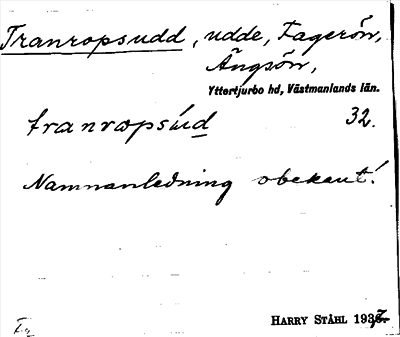 Tranropsudd, udde, Fagerön,
Ängsön,
Yttertjurbo hd, Västmanlands län.
tranropsùd 32.
Namnanledning obekant!
HARRY STÅHL 1937.